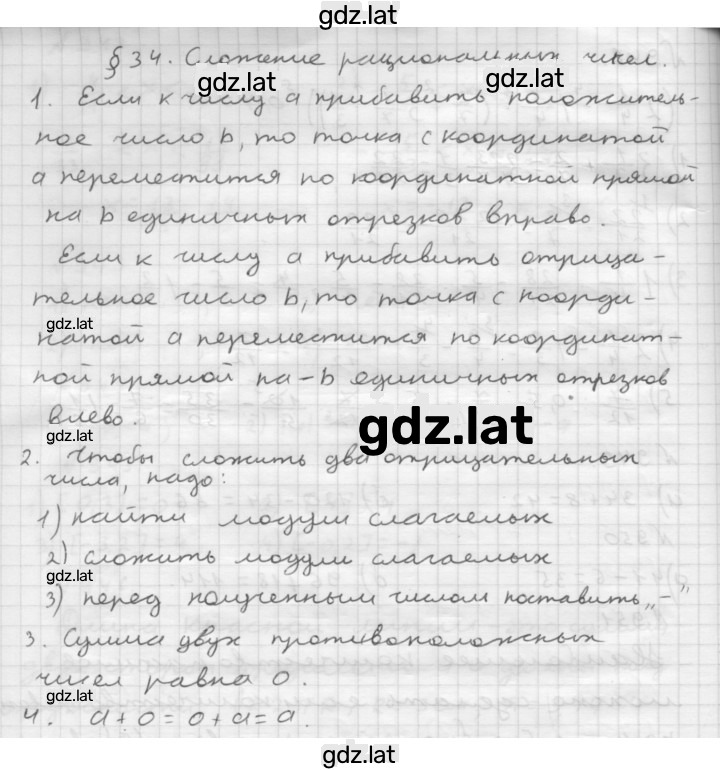 gdz.lat
§ 34. Сложение рациональных чисел.
gdz.lat
gdz.lat
1. Если к числу a прибавить положитель-
ное число b, то точка с координатой
a переместится по координатной прямой
на b единичных отрезков вправо.
Если к числу a прибавить отрица-
тельное число b, то точка с коорди-
gdz.lat
натой a переместится по координат-
ной прямой на -b единичных отрезков
влево.
gdz.lat
gdz.lat
2. Чтобы сложить два отрицательных
числа, надо:
1) найти модули слагаемых
2) сложить модули слагаемых
gdz.lat
3) перед полученным числом поставить „-"
3. Сумма двух противоположных
чисел равна 0.
gdz.lat
4. a + 0 = 0 + a = a.
gdz.lat